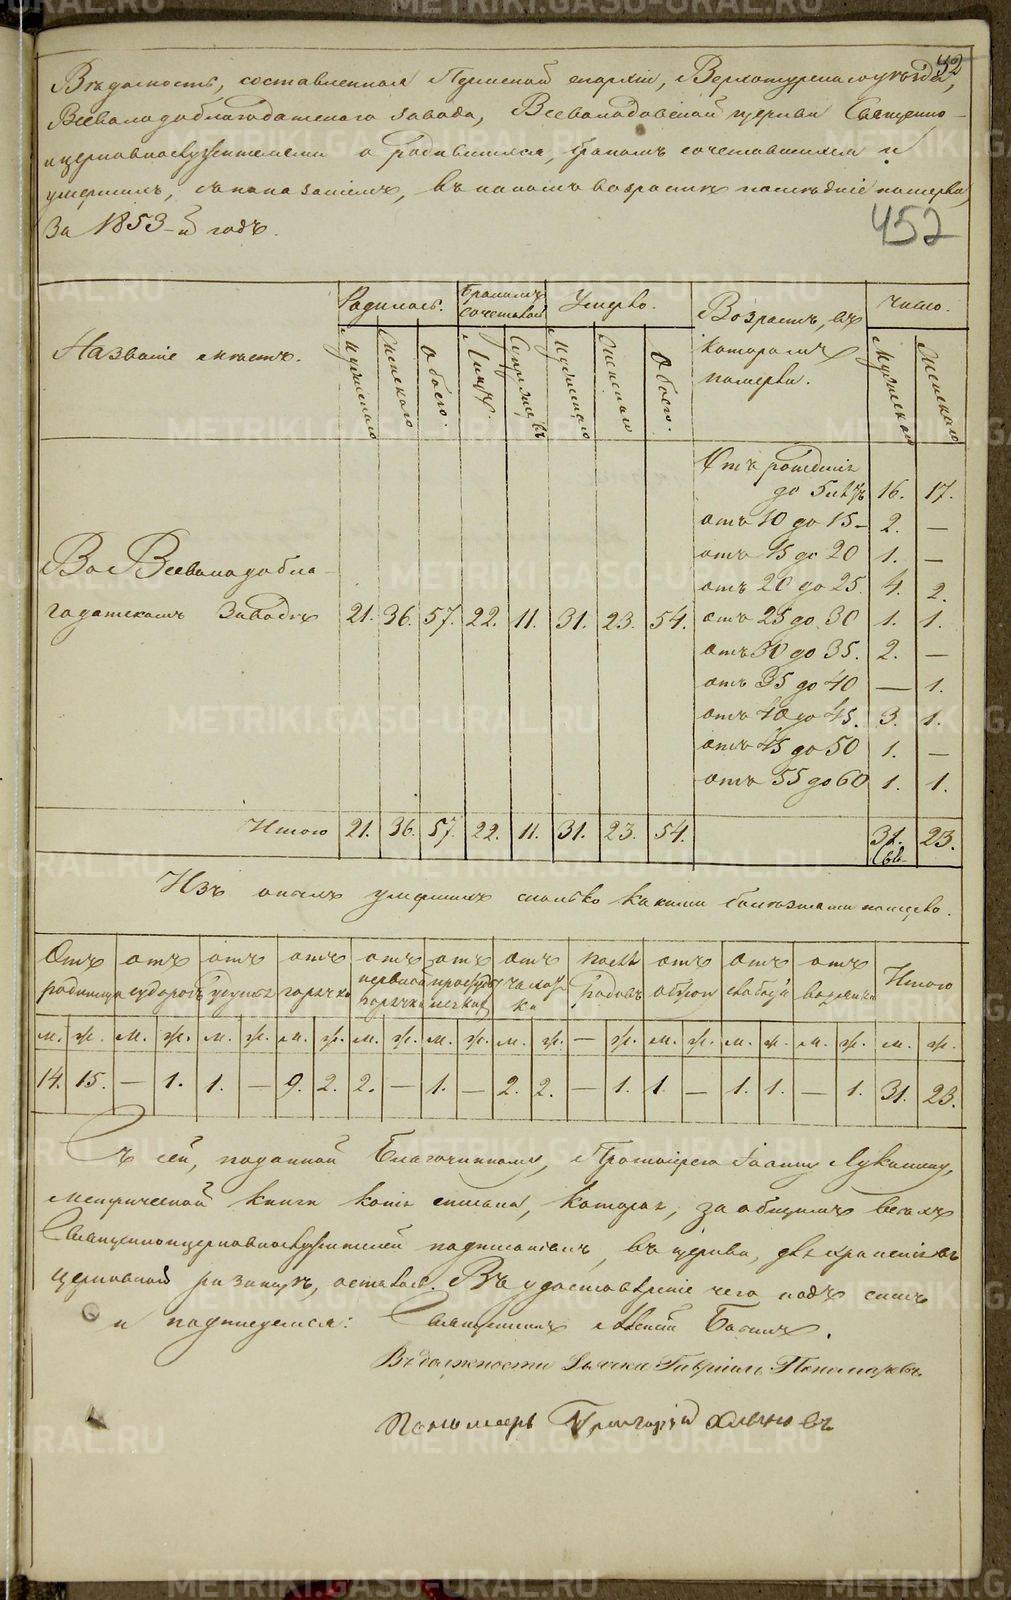 42
Вѣдомость, составленная Пермской епархіи, Верхотурскаго уѣзда,
Всеволодоблагодатскаго завода, Всеволодовской церкви Священно-
и церковнослужителями о родившихся, бракомъ сочетавшихся и
умершихъ, съ показаніемъ, въ какомъ возрастѣ послѣдніе померли,
За 1853-й годъ.
452
Названіе мѣстъ.
Родилось.
Бракомъ сочеталось
Умерло.
Возрастъ, въ которомъ померли.
Число.
Мужескаго
Женскаго
Обоего.
Лицъ.
Супружествъ
Мужескаго
Женскаго
Обоего.
Мужескаго
Женскаго
Отъ рожденія
до 5 лѣтъ 16. 17.
отъ 10 до 15 – 2. —
отъ 15 до 20 1. —
отъ 20 до 25. 4. 2.
Во Всеволодобла-
годатскомъ Заводѣ 21. 36. 57. 22. 11. 31. 23. 54. отъ 25 до 30 1. 1.
отъ 30 до 35. 2. —
отъ 35 до 40 — 1.
отъ 40 до 45. 3. 1.
отъ 45 до 50 1. —
отъ 55 до 60 1. 1.
Итого 21. 36. 57. 22. 11. 31. 23. 54. 31. 23.
Изъ онихъ умершихъ сколько какими болѣзнями померло.
Отъ родимца
отъ судорогъ
отъ
отъ горячки
отъ нервной горячки
отъ простуды
отъ чахотки
послѣ родовъ
отъ
отъ
отъ
Итого
м. ж. м. ж. м. ж. м. ж. м. ж. м. ж. м. ж. — ж. м. ж. м. ж. м. ж. м. ж.
14. 15. — 1. 1. — 9. 2. 2. — 1. — 2. 2. — 1. 1. — 1. 1. — 1. 31. 23.
Съ сей, поданной Благочинному, Протоіерею Іоанну Лукину,
метрической книги копія списана, которая, за общимъ всѣхъ
Священноцерковнослужителей подписаніемъ, въ церкви, для храненія въ
церковной ризницѣ, оставлена. Въ удостовѣреніе чего подъ симъ
и подписуемся: Священникъ
Въ должности Дьячка Гавріилъ Пономаревъ
Пономарь Григорій
METRIKI.GASO-URAL.RU